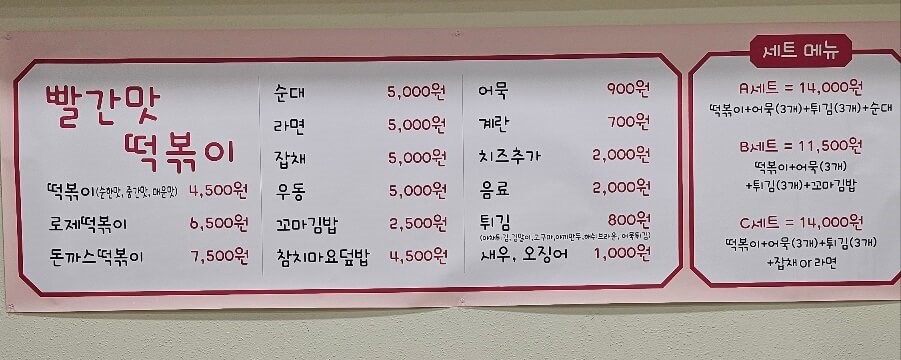 빨간맛
떡볶이
떡볶이(순한맛, 중간맛, 매운맛) 4,500원
로제떡볶이 6,500원
돈까스떡볶이 7,500원
순대 5,000원
라면 5,000원
잡채 5,000원
우동 5,000원
꼬마김밥 2,500원
참치마요덮밥 4,500원
어묵 900원
계란 700원
치즈추가 2,000원
음료 2,000원
튀김 800원
(야채튀김,김말이,고구마,야끼만두,해쉬브라운, 어묵튀김)
새우, 오징어 1,000원
세트 메뉴
A세트 = 14,000원
떡볶이+어묵(3개)+튀김(3개)+순대
B세트 = 11,500원
떡볶이+어묵(3개)
+튀김(3개)+꼬마김밥
C세트 = 14,000원
떡볶이+어묵(3개)+튀김(3개)
+잡채 or 라면